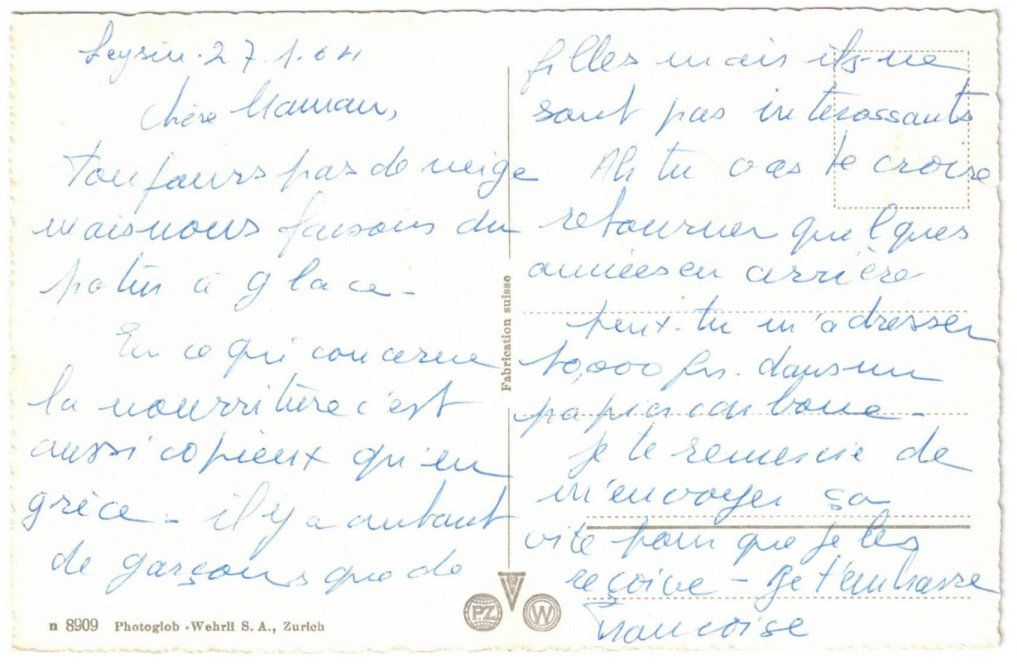 Leysin. 27.1.64
Chère Maman,
toujours pas de neige
mais nous faisons du
patin à glace -
En ce qui concerne
la nourriture c'est
aussi copieux qu'en
grèce - il y a autant
de garçons que de
filles mais ils ne
sont pas intéressants
Ah tu vas te croire
retourner quelques
années en arrière
peux-tu m'adresser
10,000 frs. dans un
papier carbone -
je te remercie de
m'envoyer ça
vite pour que je les
reçoive - Je t'embrasse
Françoise
Fabrication suisse
n 8909 Photoglob - Wehrli S. A., Zurich
PZ
W